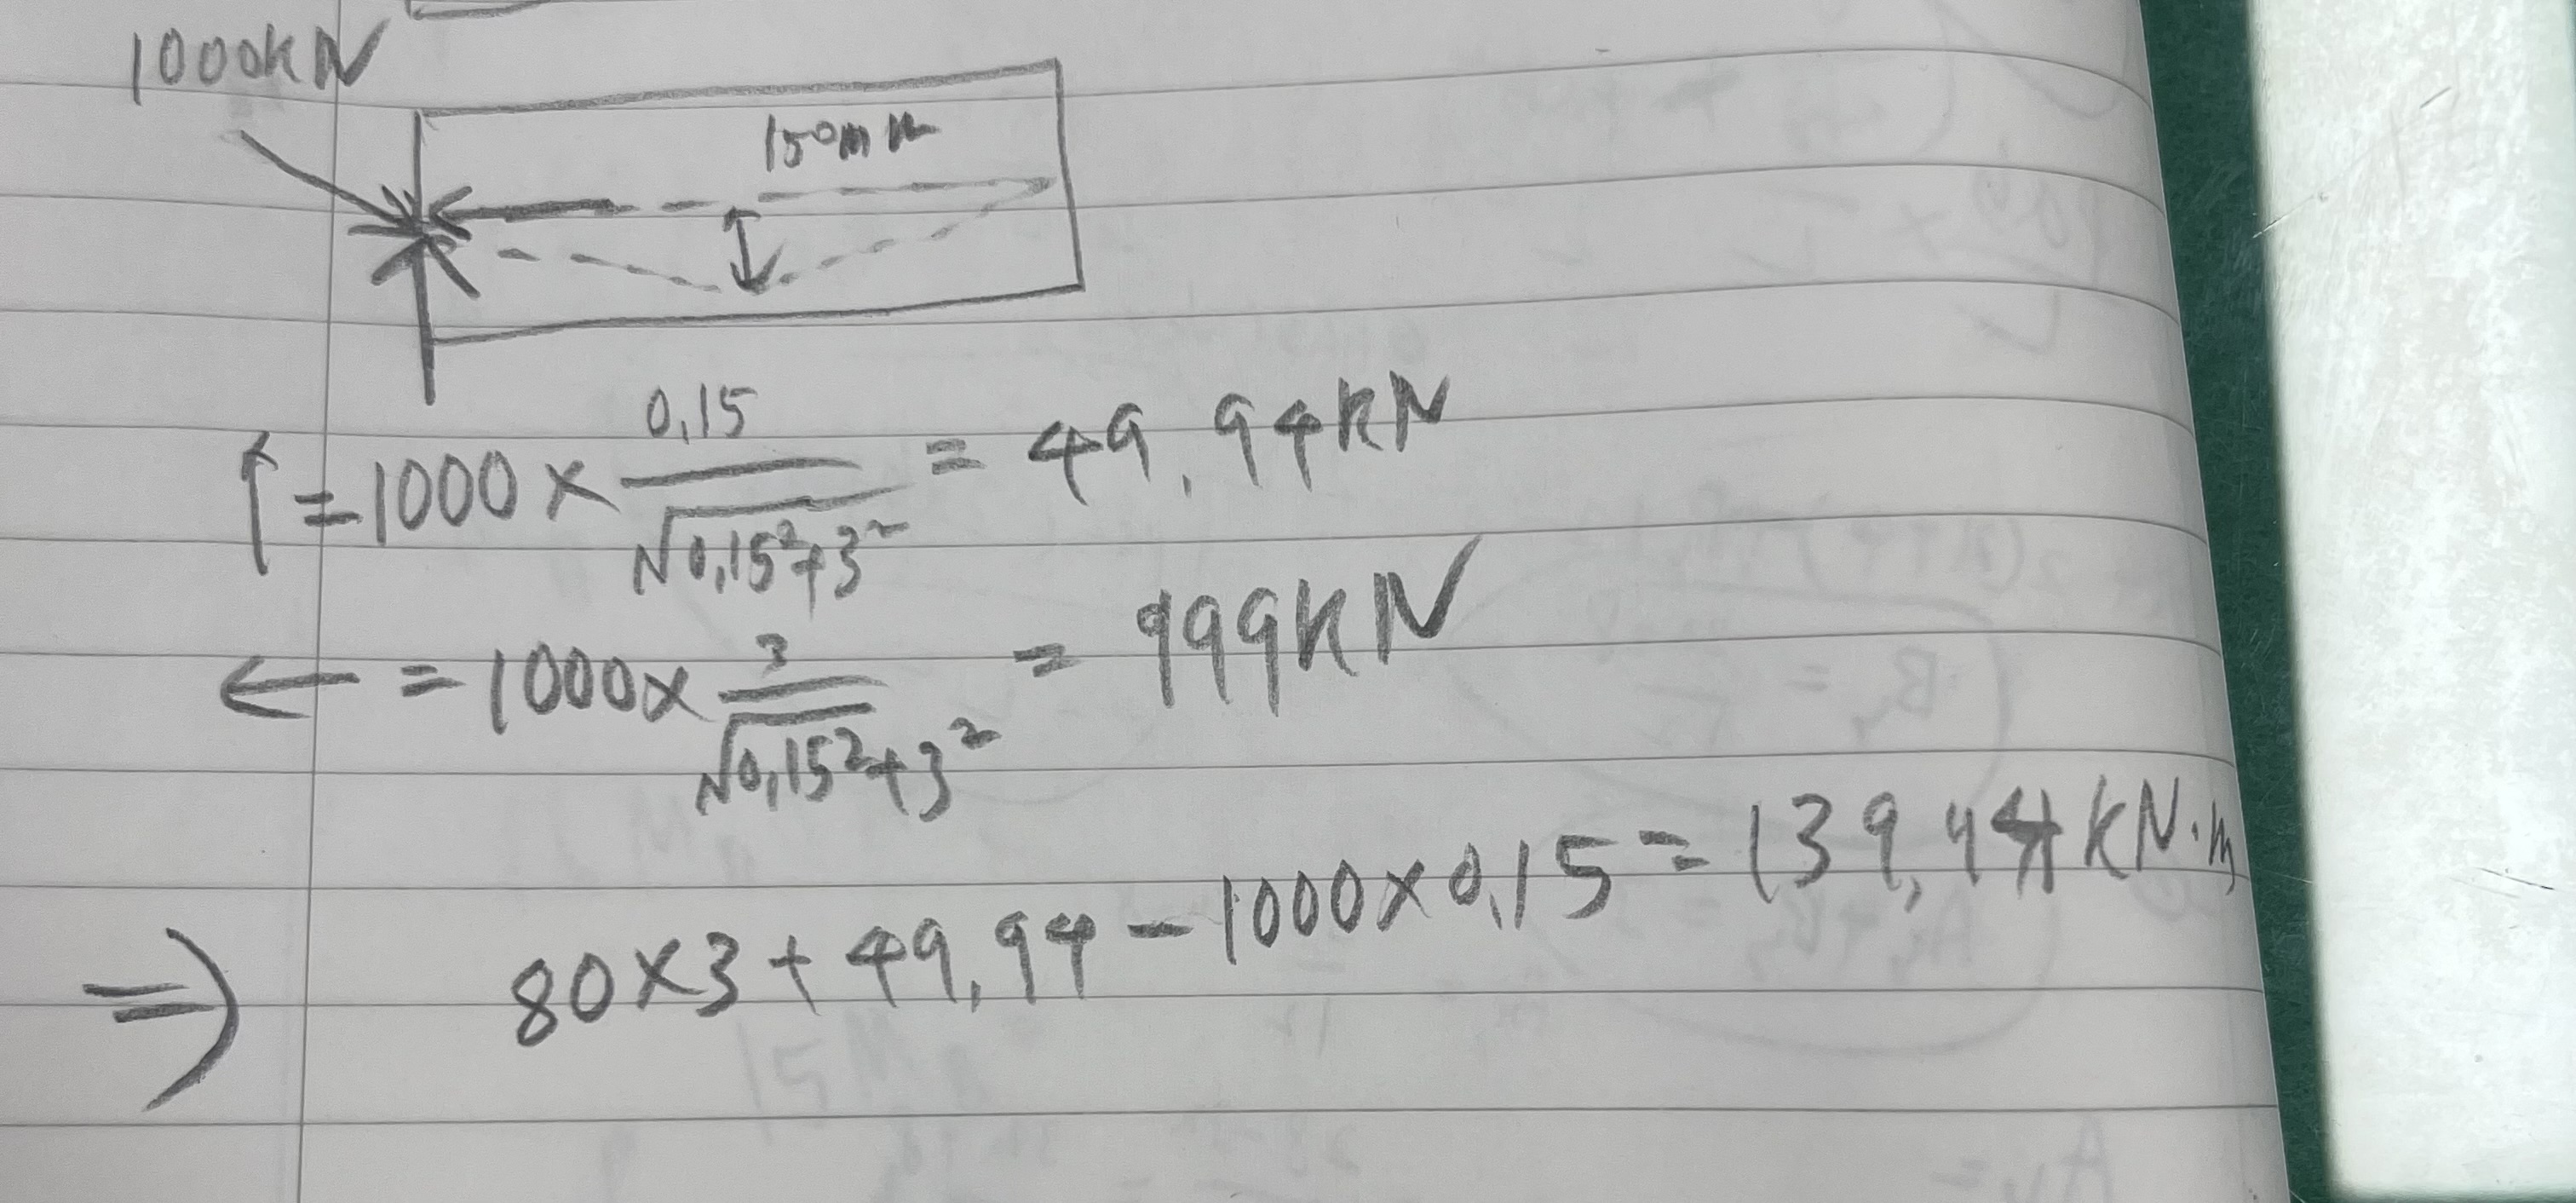 1000kN
150mm
↑ = 1000 × 0,15 / √0,15²+3² = 49.94kN
← = 1000 × 3 / √0,15²+3² = 999kN
⇒ 80×3 + 49.94 − 1000×0.15 = 139,94kN·m